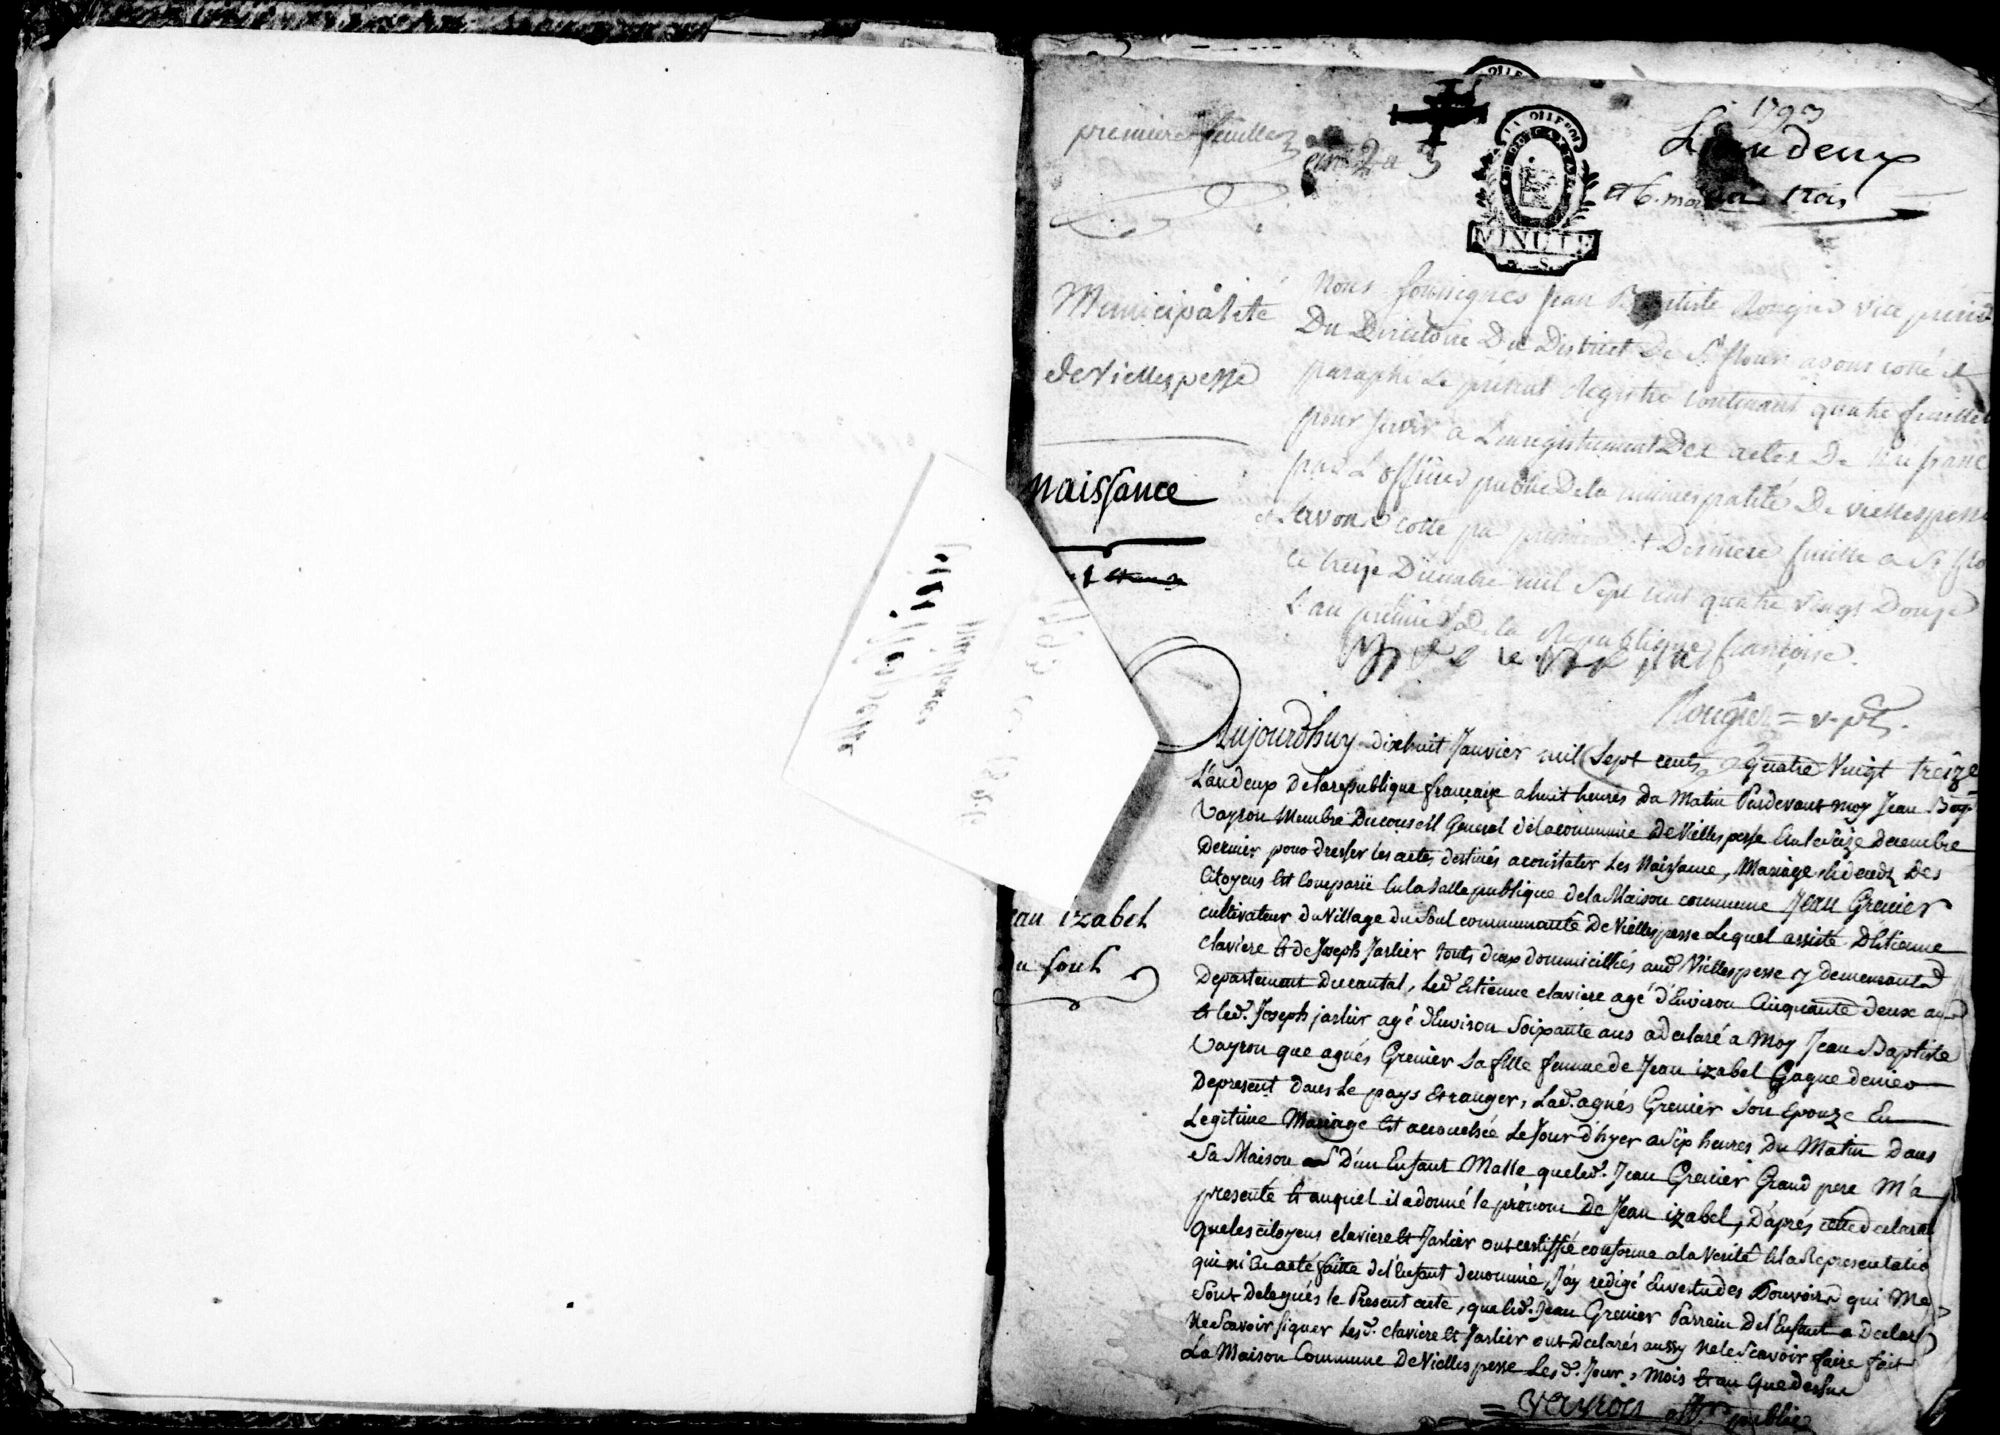 1793
L'an deux
et 6. mois
premiere feuille
Municipalité
de Viellespesse
Naissance
Nous soussignés Jean Baptiste Rougier vice présid
Du Directoire Du District De St flour avons cotté et
paraphé Le présent Registre Contenant quatre feuille
pour servir a L'enregistrement Des actes De Naissance
par L'officier public De la municipalité De viellespesse
et L'avons cotté par premiere et Derniere feuille a St flo
ce treize Décembre mil Sept cent quatre vingt Douze
L'an premier De la Republique françoise.
Rougier = v. pt.
Jean izabel
Du soul
Aujourdhuy dixhuit Janvier mil Sept cents quatre Vingt treize
L'andeux De la republique francaise a huit heures Du Matin Pardevant moy Jean Bap.
Vayron Membre Du conseil General De la commune de Viellespesse Eule treize decembre
Dernier pour dresser les actes destinés a constater Les Naissance, Mariage et deceds Des
Citoyens Est Comparü En la salle publique de la Maison commune Jean Grenier
cultivateur du village du Soul communauté De Viellespesse Lequel assisté D'Etienne
claviere Et de Joseph Jarlier touts deux dommicilliés aud. Viellespesse y demeurants
Departement Du cantal, Led. Etienne claviere agé d'Environ Cinquante deux ans
Et led. Joseph jarlier agé d'Environ Soixante ans a declaré a Moy Jean Baptiste
Vayron que agnés Grenier Sa fille femme de Jean izabel Gagne denier
De present dans le pays Etranger, Lad. agnés Grenier Son Epouze En
Legitime Mariage Est accouchée Le Jour d'hyer a Six heures Du Matin Dans
Sa Maison D'un Enfant Malle que led. Jean Grenier Grand pere M'a
presenté Et auquel il a donné le prénom de Jean izabel, D'aprés cette declarat
que les citoyens claviere Et Jarlier ont certiffié conforme a la Verité Et la Representatio
qui m'En a eté faitte de l'Enfant denommé, J'ay redigé En vertu des Pouvoirs qui Me
Sont delegués le Present acte, que led. Jean Grenier Parrein De l'Enfant a declaré
Ne Scavoir signer Lesd. claviere Et Jarlier ont declarés aussy Ne le Scavoir faire fait
La Maison Commune De Viellespesse Lesd. Jour, Mois Et an Que dessus
= VAyron off. public